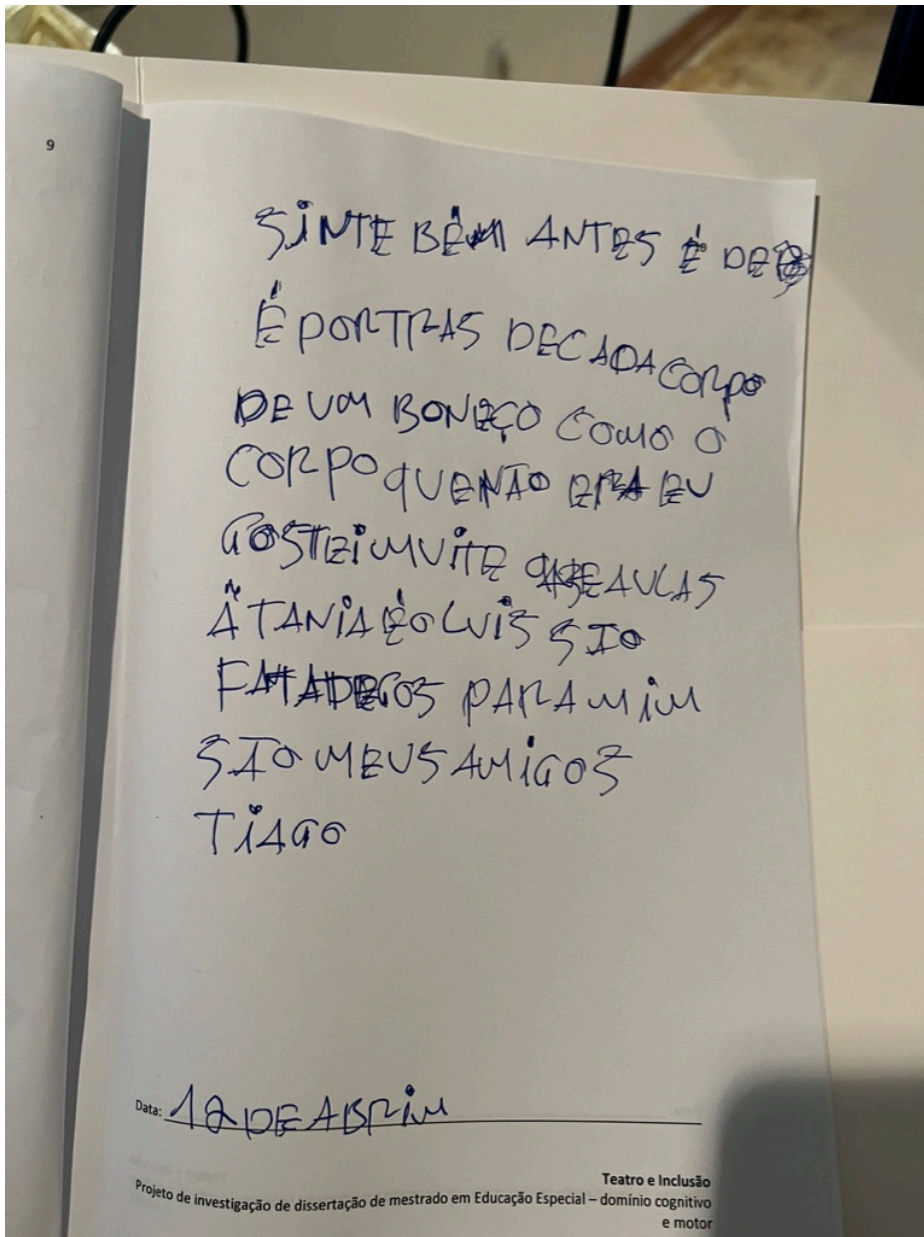 9
SINTE BÉM ANTES É DE
É PORTRAS DECADA CORPO
DE UM BONEÇO COMO O
CORPO QUENÃO ERA EU
GOSTEI MUITE AULAS
Ã TANIA É O LUIS SÃO
PARA MIM
SÃO MEUS AMIGOS
TIAGO
Data: 12 DE ABRIM
Teatro e Inclusão
Projeto de investigação de dissertação de mestrado em Educação Especial – domínio cognitivo
e motor